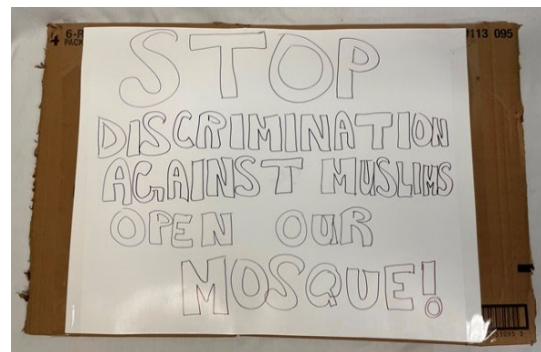 4 6-P
PACK
113 095
STOP
DISCRIMINATION
AGAINST MUSLIMS
OPEN OUR
MOSQUE!